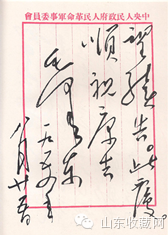 中央人民政府人民革命軍事委員會
望續告。此復
順祝康吉
毛澤東
八月廿五日
山东收藏网